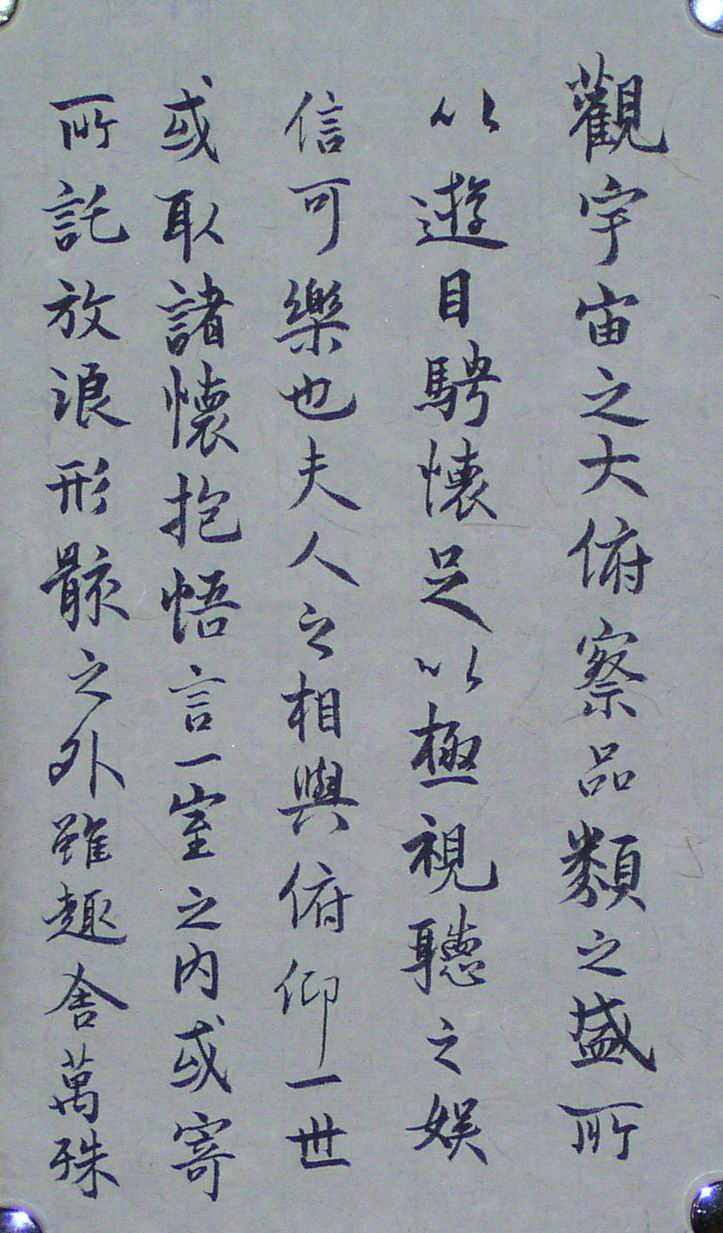 觀宇宙之大俯察品類之盛所
以遊目騁懷足以極視聽之娛
信可樂也夫人之相與俯仰一世
或取諸懷抱悟言一室之內或寄
所託放浪形骸之外雖趣舍萬殊